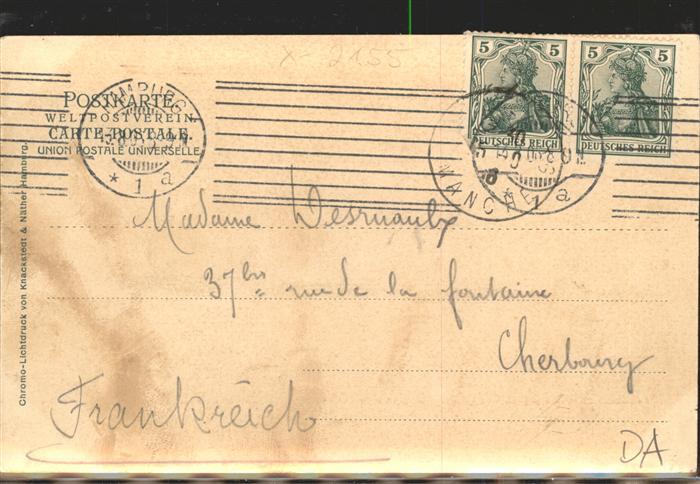 X-2155
5 5
DEUTSCHES REICH DEUTSCHES REICH
HAMBURG
* 1 a
MANCHE
* 1 a
POSTKARTE.
WELTPOSTVEREIN.
CARTE-POSTALE.
UNION POSTALE UNIVERSELLE
Madame
37 bis rue de la fontaine
Cherbourg
Frankreich
DA
Chromo-Lichtdruck von Knackstedt & Näther Hamburg.